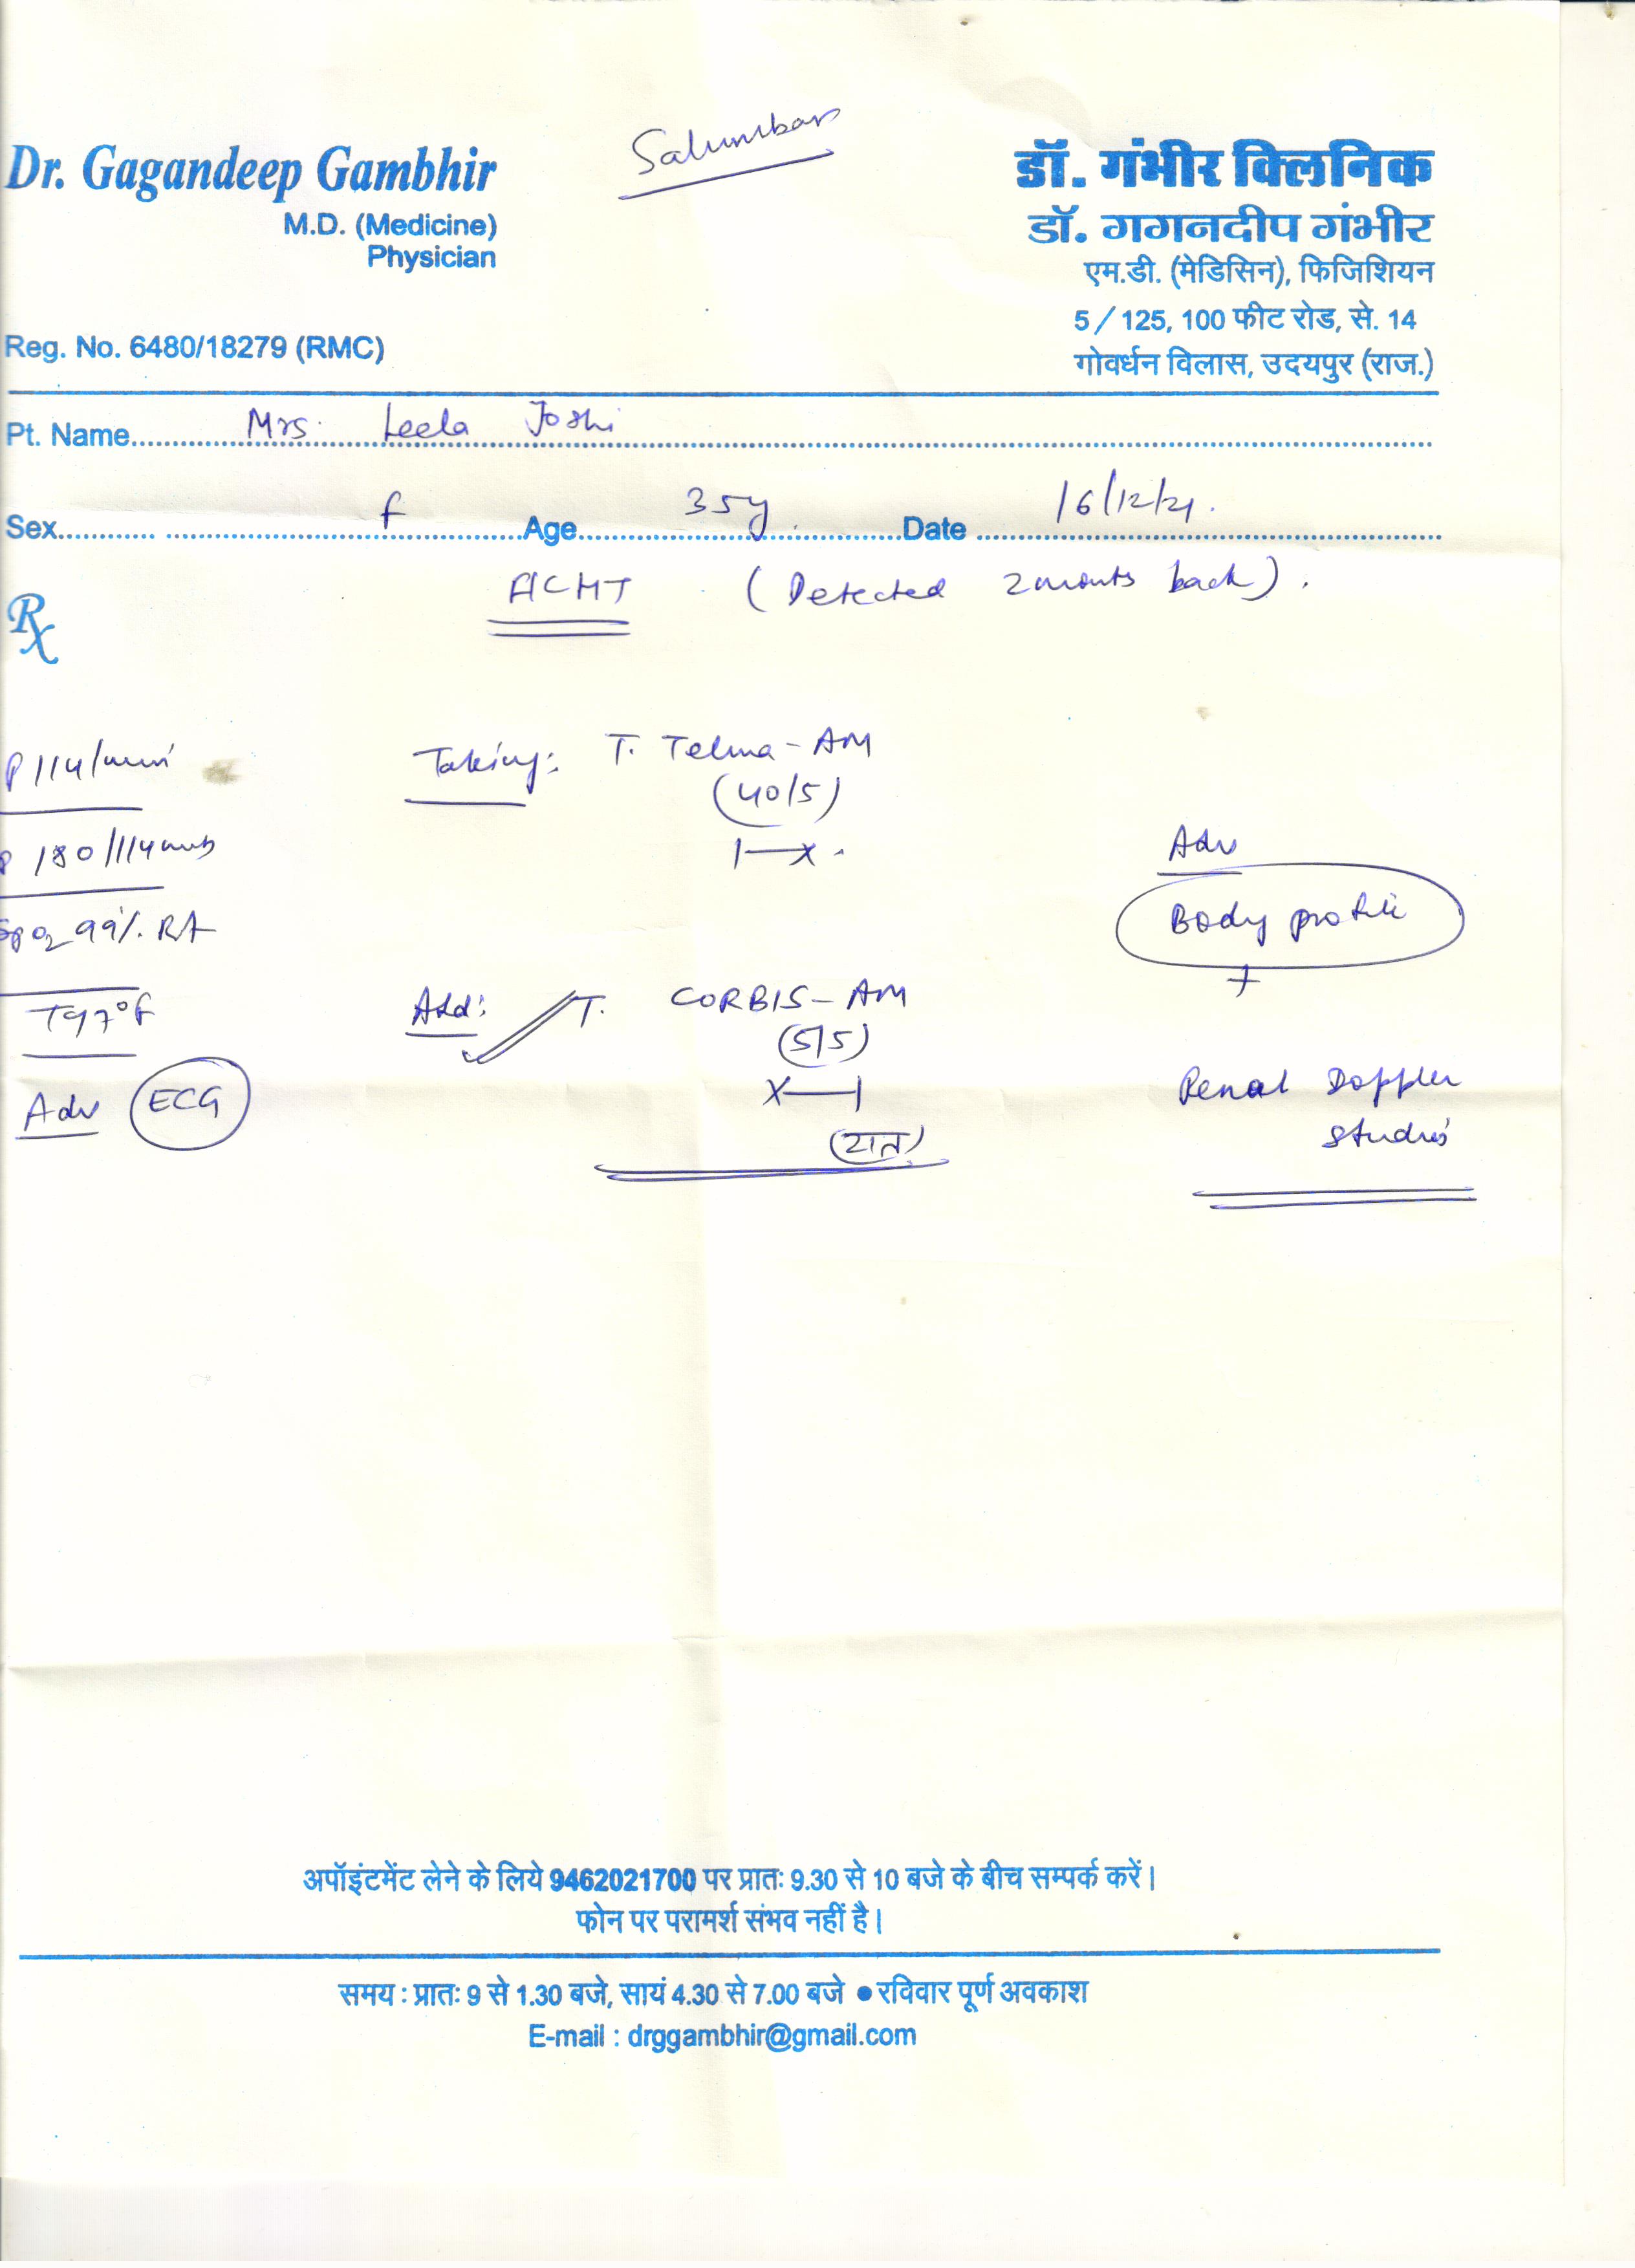 Salumbar
Dr. Gagandeep Gambhir
M.D. (Medicine)
Physician
Reg. No. 6480/18279 (RMC)
डॉ. गंभीर क्लिनिक
डॉ. गगनदीप गंभीर
एम.डी. (मेडिसिन), फिजिशियन
5/125, 100 फीट रोड, से. 14
गोवर्धन विलास, उदयपुर (राज.)
Pt. Name Mrs. Leela Joshi
Sex f Age 35y. Date 16/12/21.
Rx
(Detected 2 months back).
P 114/min
180/114
SpO2 99% RA
T 97°F
Adv ECG
Taking: T. Telma-AM
(40/5)
1—x.
Add: T. CORBIS-AM
(5/5)
X—1
(रात)
Adv
Body profile
+
Renal Doppler
Studies
अपॉइंटमेंट लेने के लिये 9462021700 पर प्रातः 9.30 से 10 बजे के बीच सम्पर्क करें।
फोन पर परामर्श संभव नहीं है।
समय : प्रातः 9 से 1.30 बजे, सायं 4.30 से 7.00 बजे ● रविवार पूर्ण अवकाश
E-mail : drggambhir@gmail.com